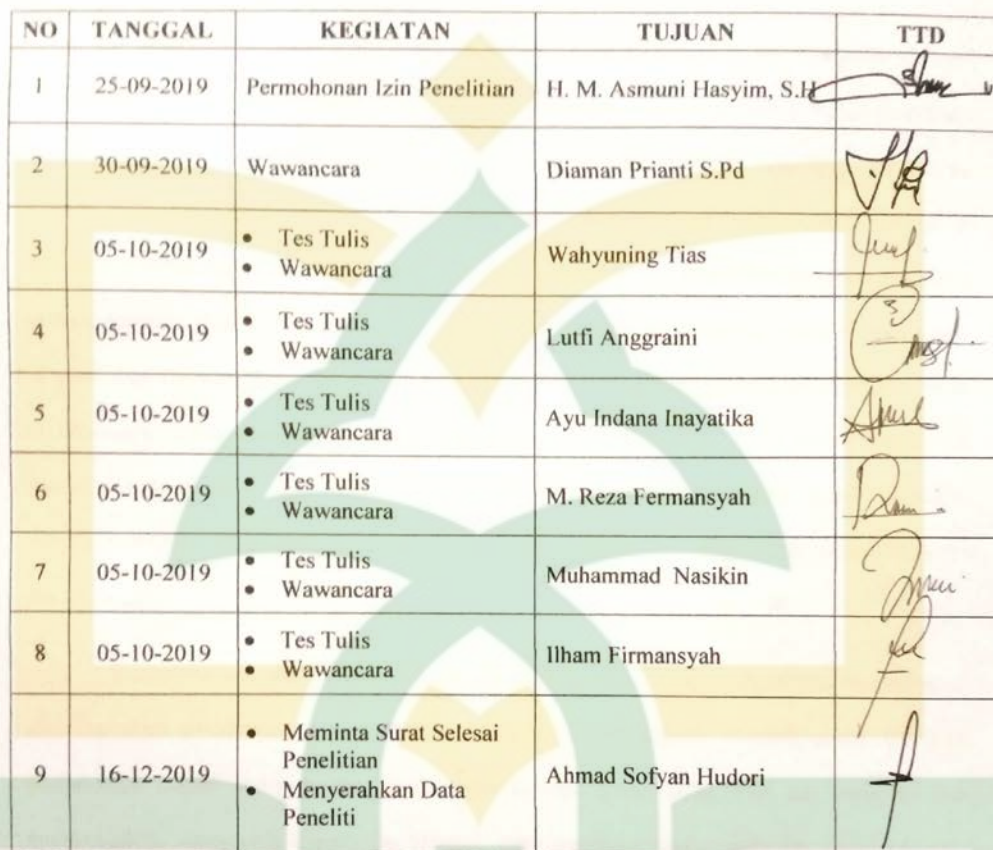 NO TANGGAL KEGIATAN TUJUAN TTD
1 25-09-2019 Permohonan Izin Penelitian H. M. Asmuni Hasyim, S.H
2 30-09-2019 Wawancara Diaman Prianti S.Pd
3 05-10-2019 • Tes Tulis
• Wawancara Wahyuning Tias
4 05-10-2019 • Tes Tulis
• Wawancara Lutfi Anggraini
5 05-10-2019 • Tes Tulis
• Wawancara Ayu Indana Inayatika
6 05-10-2019 • Tes Tulis
• Wawancara M. Reza Fermansyah
7 05-10-2019 • Tes Tulis
• Wawancara Muhammad Nasikin
8 05-10-2019 • Tes Tulis
• Wawancara Ilham Firmansyah
9 16-12-2019 • Meminta Surat Selesai
Penelitian
• Menyerahkan Data
Peneliti Ahmad Sofyan Hudori